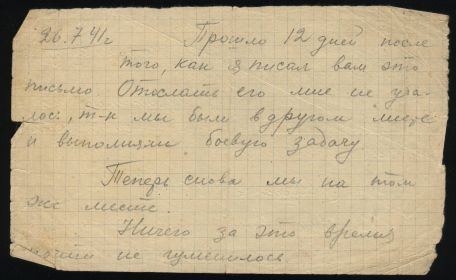 26.7.41г Прошло 12 дней после
того, как я писал вам это
письмо Отослать его мне не уда-
лось, т-к мы были в другом месте
и выполняли боевую задачу
Теперь снова мы на том
же месте.
Ничего за это время
почти не изменилось